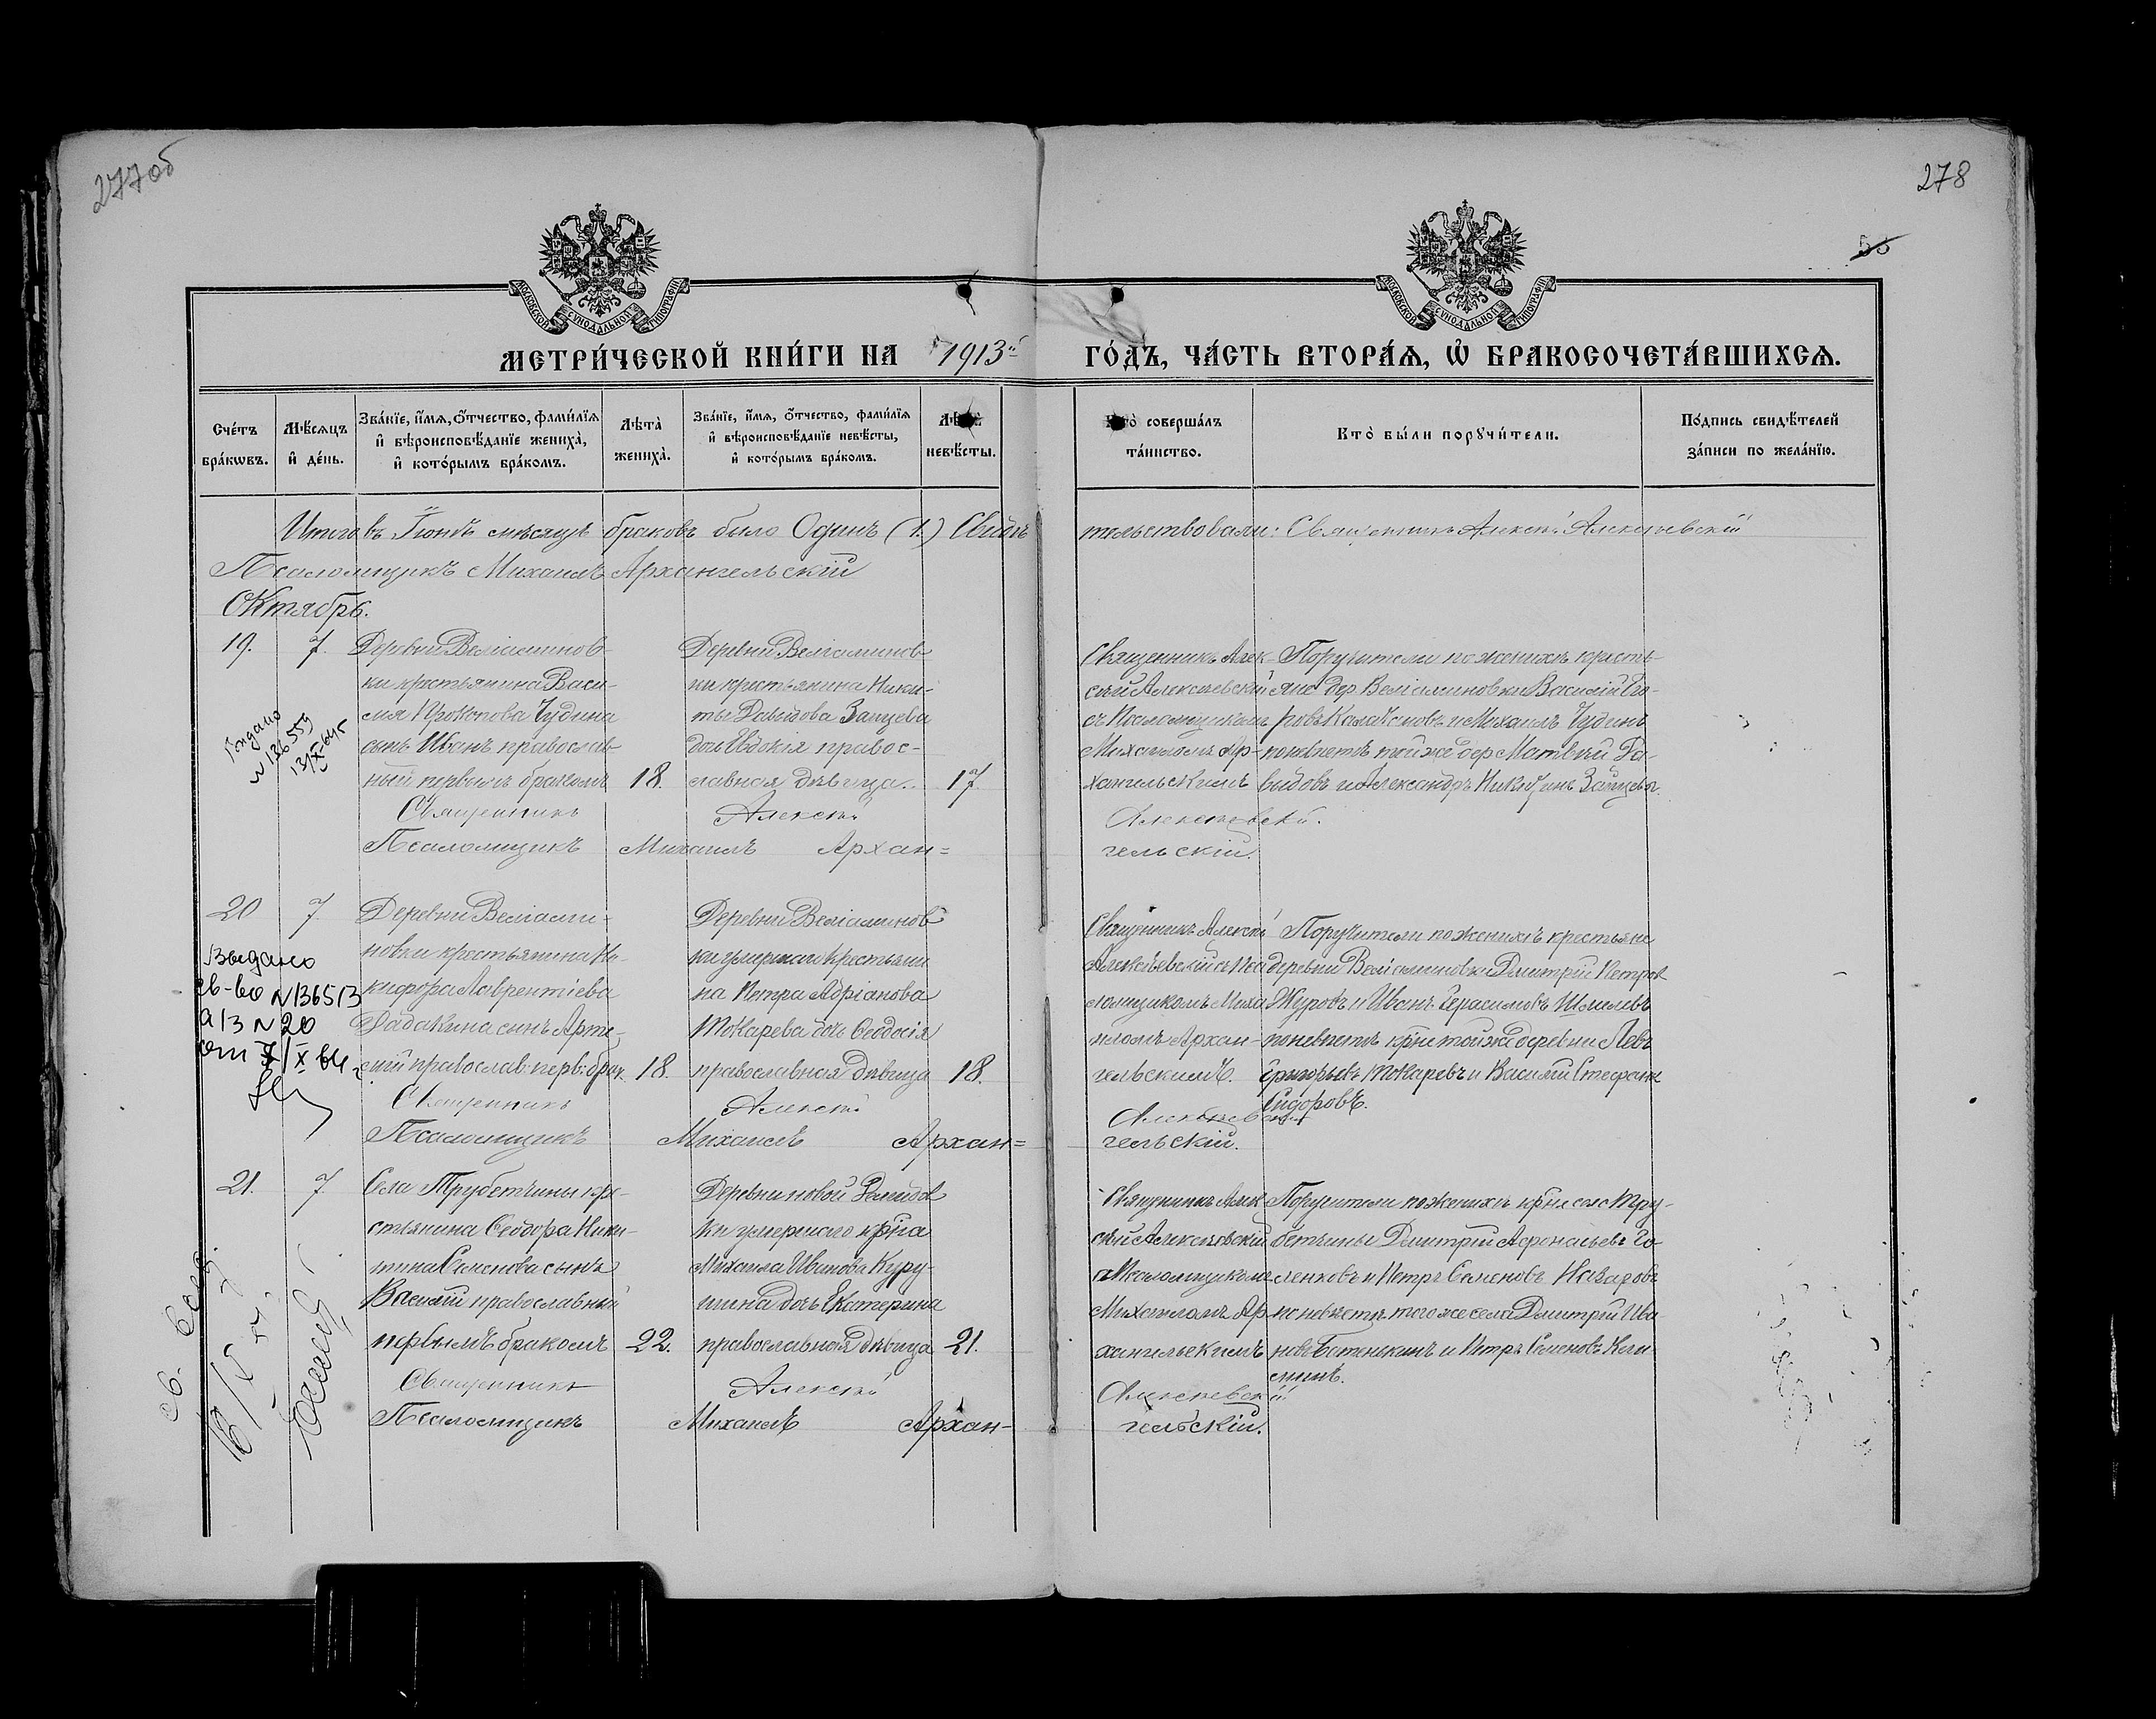 277об
278
53
МОСКОВСКОЙ СѴНОДАЛЬНОЙ ТИПОГРАФІИ
МОСКОВСКОЙ СѴНОДАЛЬНОЙ ТИПОГРАФІИ
МЕТРИ́ЧЕСКОЙ КНИ́ГИ НА 1913й ГО́ДЪ, ЧА́СТЬ ВТОРА́Ѧ, Ѡ҆ БРАКОСОЧЕТА́ВШИХСѦ.
Сче́тъ бра́кѡвъ.
Мѣ́сѧцъ и҆ де́нь.
Зва́нїе, и҆́мѧ, ѻ҆́тчество, фами́лїѧ и҆ вѣроисповѣ́данїе жениха̀, и҆ кото́рымъ бра́комъ.
Лѣ́та̀ жениха̀.
Зва́нїе, и҆́мѧ, ѻ҆́тчество, фами́лїѧ и҆ вѣроисповѣ́данїе невѣ́сты, и҆ кото́рымъ бра́комъ.
невѣ́сты.
совершáлъ та́инство.
Кто̀ бы́ли порꙋчи́тели.
По́дпись свидѣ́телей за́писи по жела́нїю.
Итого въ Іюнѣ мѣсяцѣ браковъ было Одинъ (1.) Свидѣтельствовали: Священникъ Алексѣй Алексѣевскій
Псаломщикъ Михаилъ Архангельскій
Октябрь.
19. 7.
Деревни Веліаминов-
ки крестьянина Васи-
лія Прокопова Чудина
сынъ Иванъ православ-
ный первымъ бракомъ
18.
Деревни Веліаминов-
ки крестьянина Ники-
ты Давыдова Зайцева
дочь Евдокія правос-
лавная дѣвица.
17.
Священникъ Алек-
сѣй Алексѣевскій
съ Псаломщикомъ
Михаиломъ Ар-
хангельскимъ
Поручители по женихѣ кресть-
яне дер. Веліаминовки Василій
и Михаилъ Чудинъ
по невѣстѣ той же дер Матвѣй Да-
видовъ и Александръ Никитинъ Зайцевы.
Выдано
№ 136559
Священникъ Алексѣй Алексѣевскій.
Псаломщикъ Михаилъ Архан=гельскій.
20 7.
Деревни Веліами-
новки крестьянина Ни-
кифора Лаврентіева
Дадакина сынъ Арте-
мій православ. перв. брак.
18.
Деревни Веліаминов
ки умершаго крестьяни
на Петра Адріанова
Токарева дочь Ѳеодосія
православная дѣвица
18.
Священникъ Алексѣй
Алексѣевскій съ Пса
ломщикомъ Миха
иломъ Архан-
гельскимъ.
Поручители по женихѣ крестьяне
деревни Веліаминовки Дмитрій Петров
Журовъ и Иванъ Герасимовъ Шмелевъ
по невѣстѣ кр̃не той же деревни Левъ
Григорьевъ Токаревъ и Василій Стефанов
Сидоровъ.
Выдано
св-во №136513
а/з №20
от 7/X 64 г
Священникъ Алексѣй Алексѣевскій
Псаломщикъ Михаилъ Архан=гельскій.
21. 7.
Села Трубетчины кре-
стьянина Ѳеодора Ники-
тина Семенова сынъ
Василій православный
первымъ бракомъ
22.
Деревни новой Демидов
ки умершаго кр̃на
Михаила Иванова Куру-
шина дочь Екатерина
православная дѣвица
21.
Священникъ Алек-
сѣй Алексѣевскій
съ Псаломщикомъ
Михаиломъ Ар-
хангельскимъ
Поручители по женихѣ кр̃не села Тру-
бетчины Дмитрій Афонасьевъ Го
ленковъ и Петръ Семеновъ Назаровъ
по невѣстѣ того же села Дмитрій Ива
новъ Батенькинъ и Петръ Семеновъ
Священникъ Алексѣй Алексѣевскій
Псаломщикъ Михаилъ Архан-гельскій.